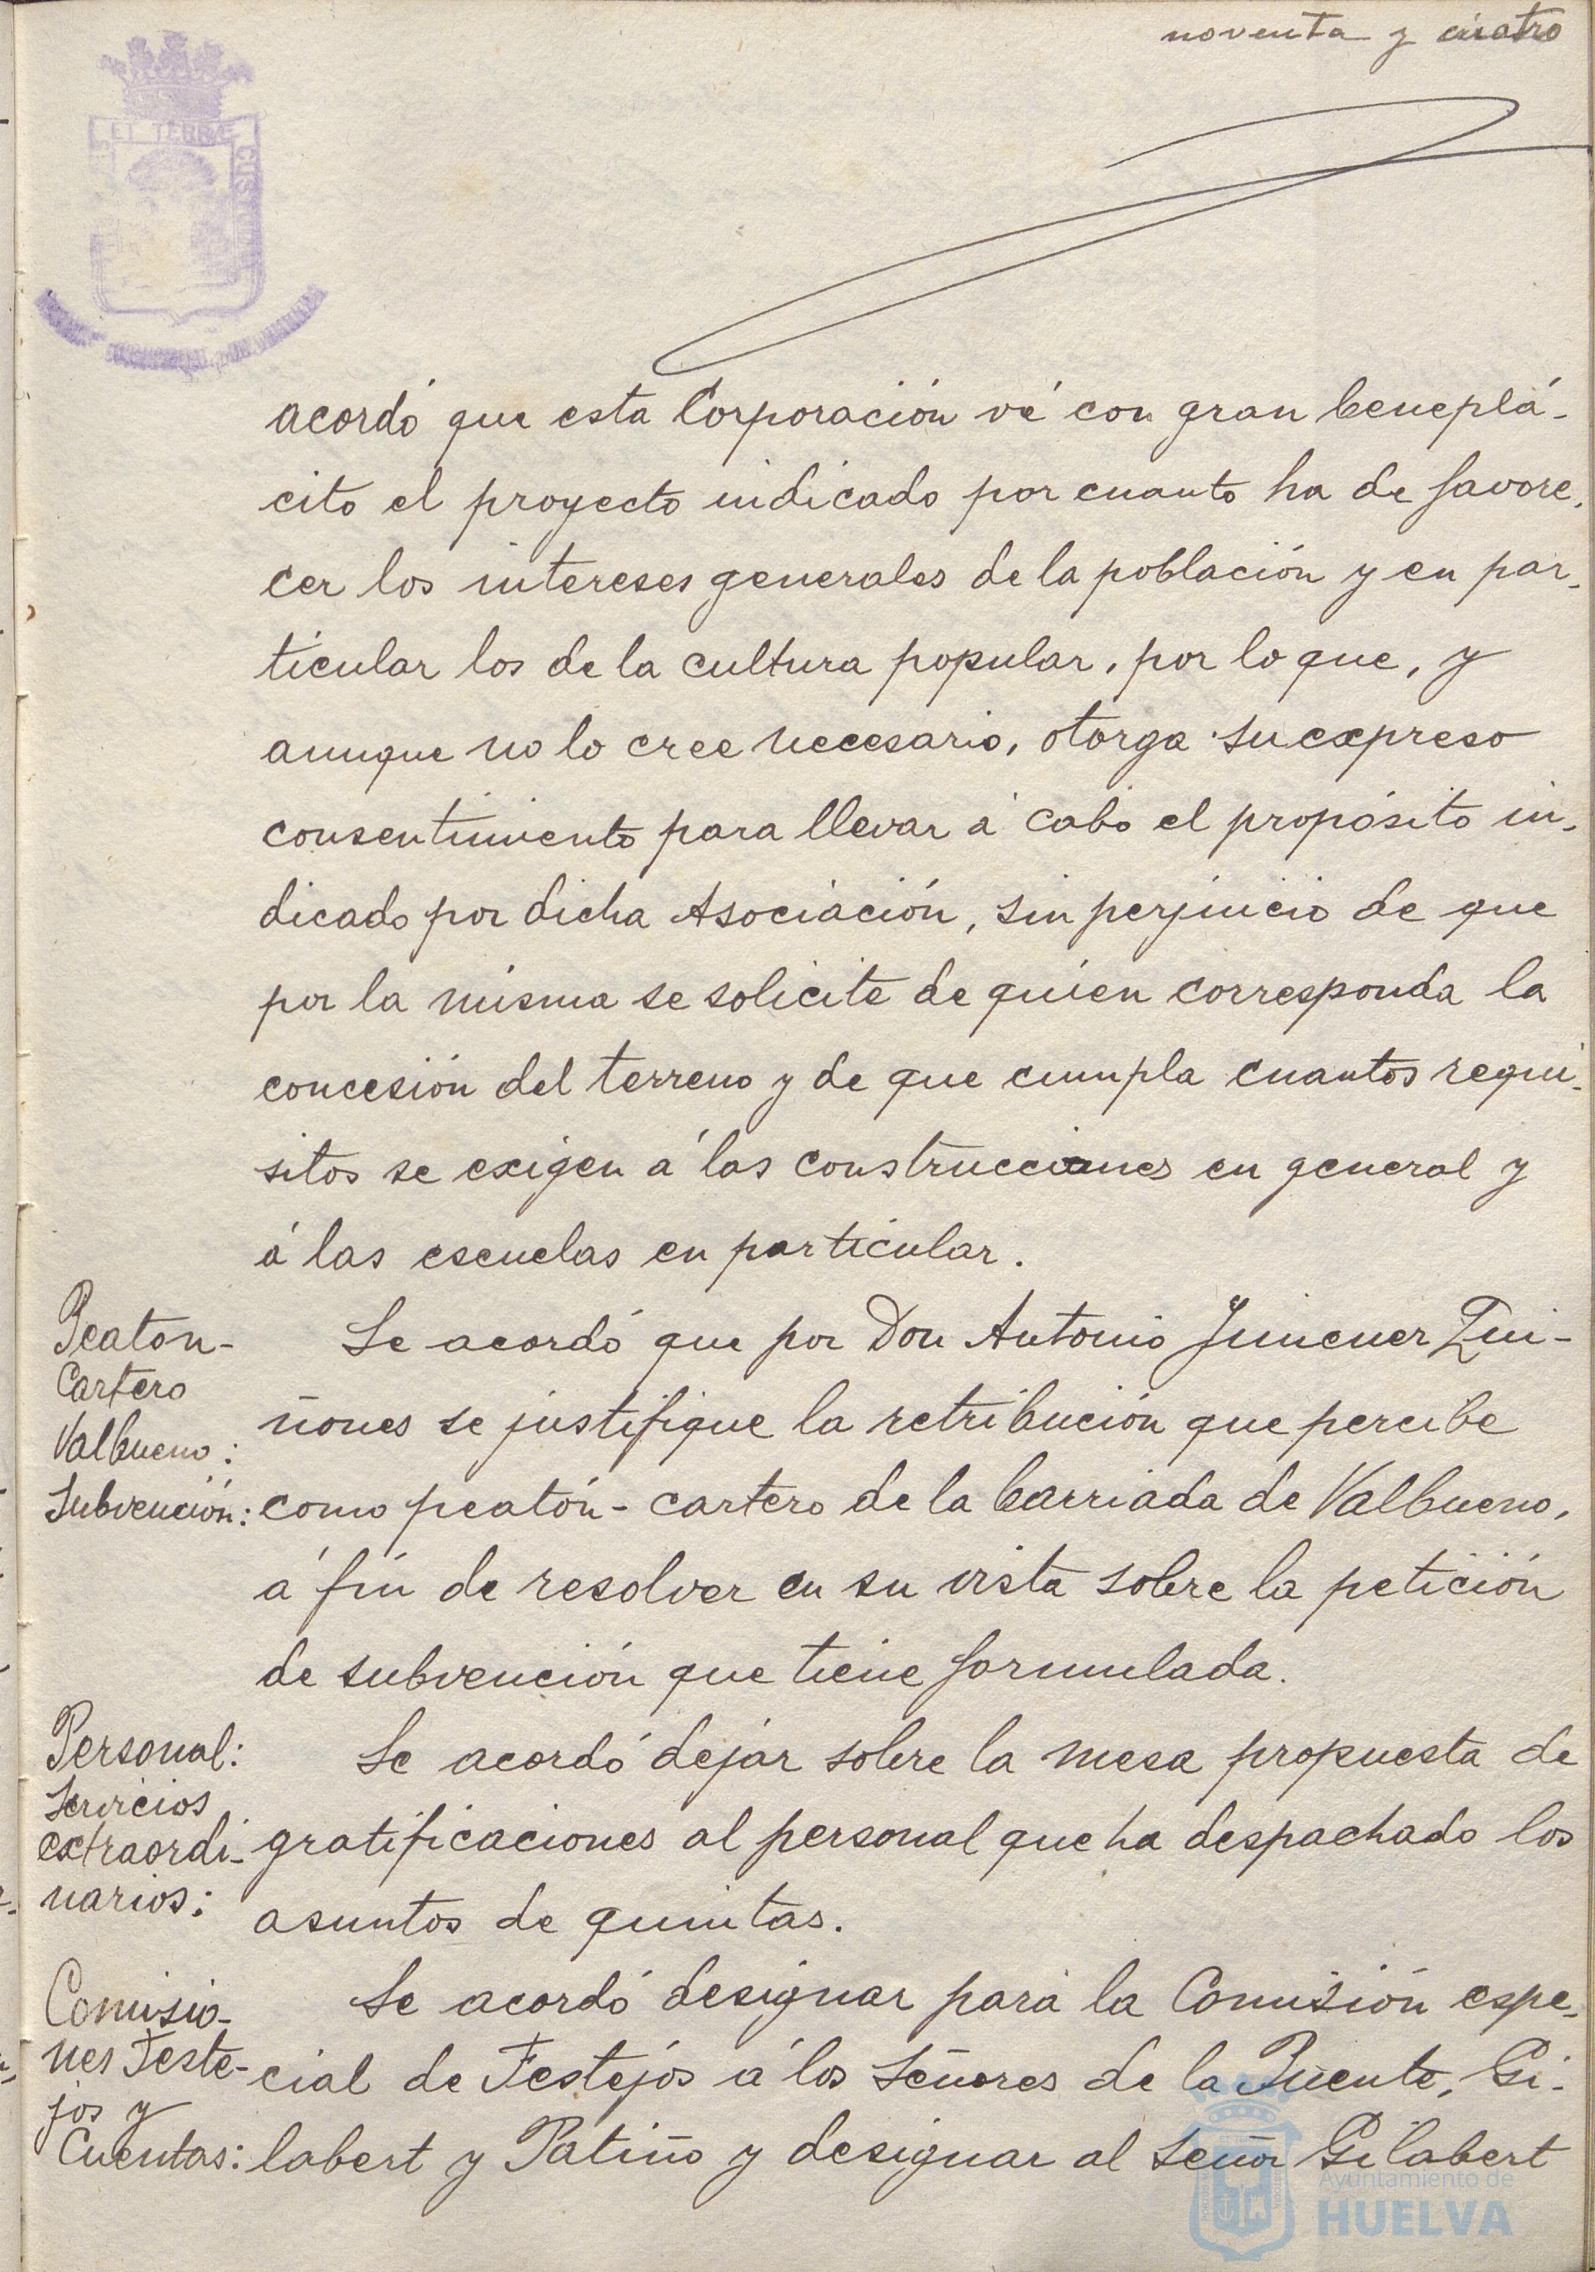 noventa y cuatro
ET TERRÆ
acordó que esta Corporación vé con gran beneplá-
cito el proyecto indicado por cuanto ha de favore-
cer los intereses generales de la población y en par-
ticular los de la cultura popular, por lo que, y
aunque no lo cree necesario, otorga su expreso
consentimiento para llevar á cabo el propósito in-
dicado por dicha Asociación, sin perjuicio de que
por la misma se solicite de quien corresponda la
concesión del terreno y de que cumpla cuantos requi-
sitos se exigen á las construcciones en general y
á las escuelas en particular.
Peaton-
Cartero
Valbueno:
Subvención:
Se acordó que por Don Antonio Jimener Qui-
ñones se justifique la retribución que percibe
como peatón-cartero de la barriada de Valbueno,
á fin de resolver en su vista sobre la petición
de subvención que tiene formulada.
Personal:
Servicios
extraordi-
narios:
Se acordó dejar sobre la mesa propuesta de
gratificaciones al personal que ha despachado los
asuntos de quintas.
Comisio-
nes Feste-
jos y
Cuentas:
Se acordó designar para la Comisión espe-
cial de Festejos á los Señores de la Puente, Gi-
labert y Patiño y designar al Señor Gilabert
Ayuntamiento de
HUELVA